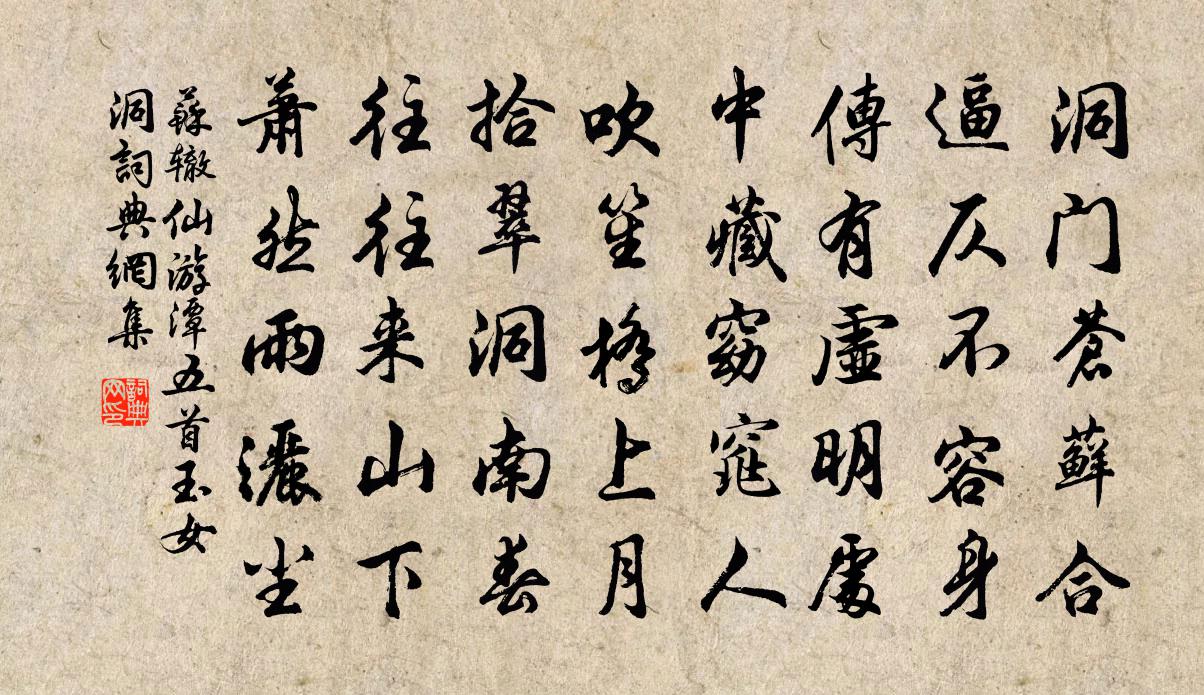 洞门苍藓合
逼仄不容身
傳有虛明處
中藏窈窕人
吹笙橋上月
拾翠洞南春
往往来山下
萧然雨灑尘
蘇辙仙游潭五首玉女
洞詞典網集
詞典
网印